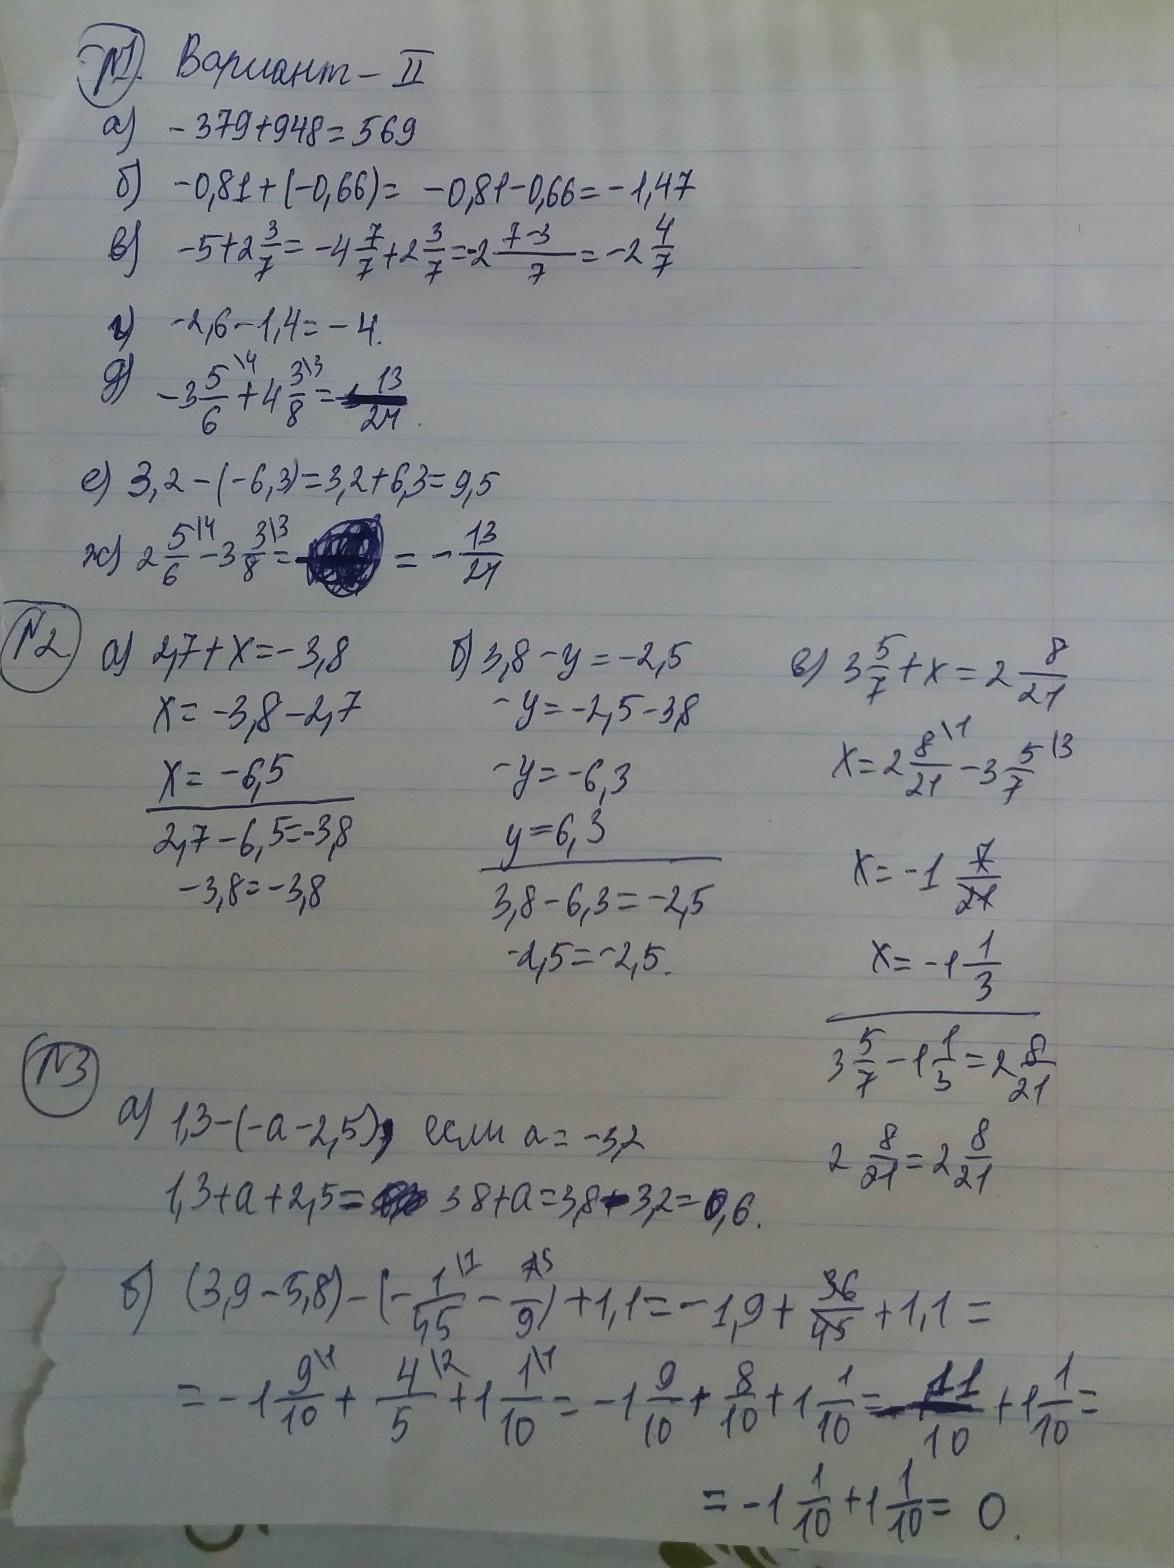 №1. Вариант – II
а) -379+948=569
б) -0,81+(-0,66)= -0,81-0,66=-1,47
в) -5+2 3/7 = -4 7/7 + 2 3/7 = -2 (7-3)/7 = -2 4/7
г) -2,6-1,4=-4.
д) -3 5/6 \4 + 4 3/8 \3 = 13/24.
е) 3,2-(-6,3)=3,2+6,3=9,5
ж) 2 5/6 \4 - 3 3/8 \3 = = - 13/24
№2 а) 2,7+x=-3,8
x=-3,8-2,7
x=-6,5
2,7-6,5=-3,8
-3,8=-3,8
б) 3,8-y=-2,5
-y=-2,5-3,8
-y=-6,3
y=6,3
3,8-6,3=-2,5
-2,5=-2,5.
в) 3 5/7 + x = 2 8/21
x= 2 8/21 \1 - 3 5/7 \3
x= -1 7/21
x= -1 1/3
3 5/7 - 1 1/3 = 2 8/21
2 8/21 = 2 8/21
№3
а) 1,3-(-a-2,5), если a=-3,2
1,3+a+2,5= 3,8+a=3,8-3,2=0,6.
б) (3,9-5,8)-(- 1/45 \1 - 7/9 \5)+1,1=-1,9+ 36/45 +1,1=
= -1 9/10 \1 + 4/5 \2 + 1 1/10 \1 = -1 9/10 + 8/10 + 1 1/10 = - 11/10 + 1 1/10 =
= -1 1/10 + 1 1/10 = 0.